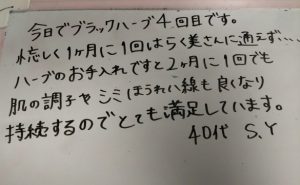 今日でブラックハーブ4回目です。
忙しく1ヶ月に1回はらく美さんに通えず…..
ハーブのお手入れですと2ヶ月に1回でも
肌の調子やシミほうれい線も良くなり
持続するのでとても満足しています。
40代 S.Y